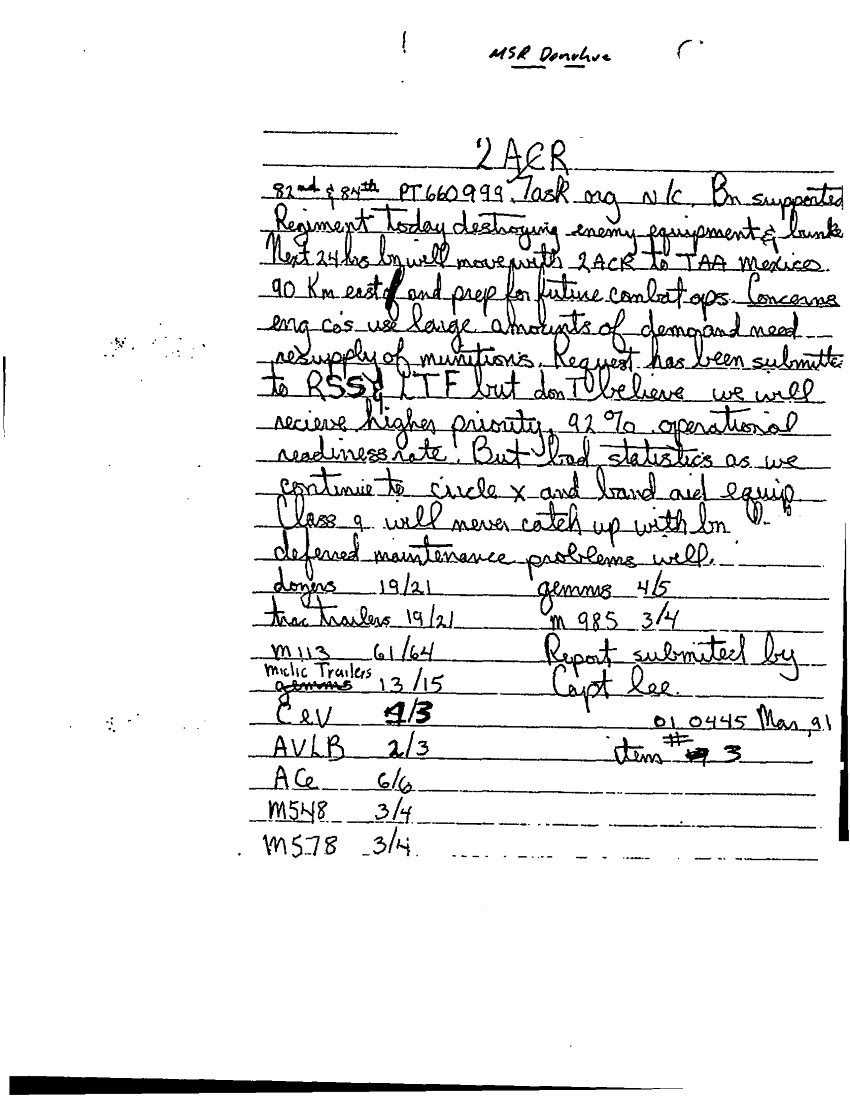 MSR Donohue
2ACR
82nd & 84th PT660999. Task org N/C. Bn supported
Regiment today destroying enemy equipment & bunke
Next 24 hrs bn will move with 2ACR to TAA Mexico.
90 Km east and prep for future combat ops. Concerns
eng co's use large amounts of demo and need
resupply of munitions. Request has been submitte
to RSS & LTF but don't believe we will
recieve higher priority. 92% operational
readiness rate. But bad statistics as we
continue to circle x and band aid equip.
Class 9 will never catch up with bn
deferred maintenance problems will.
dozers 19/21 gemms 4/5
trac trailers 19/21 M 985 3/4
M113 61/64 Report submited by
Miclic Trailers
gemms 13/15 Capt Lee.
CEV 4/3 01 0445 Mar 91
AVLB 2/3 item # 3
ACE 6/6
M548 3/4
M578 3/4